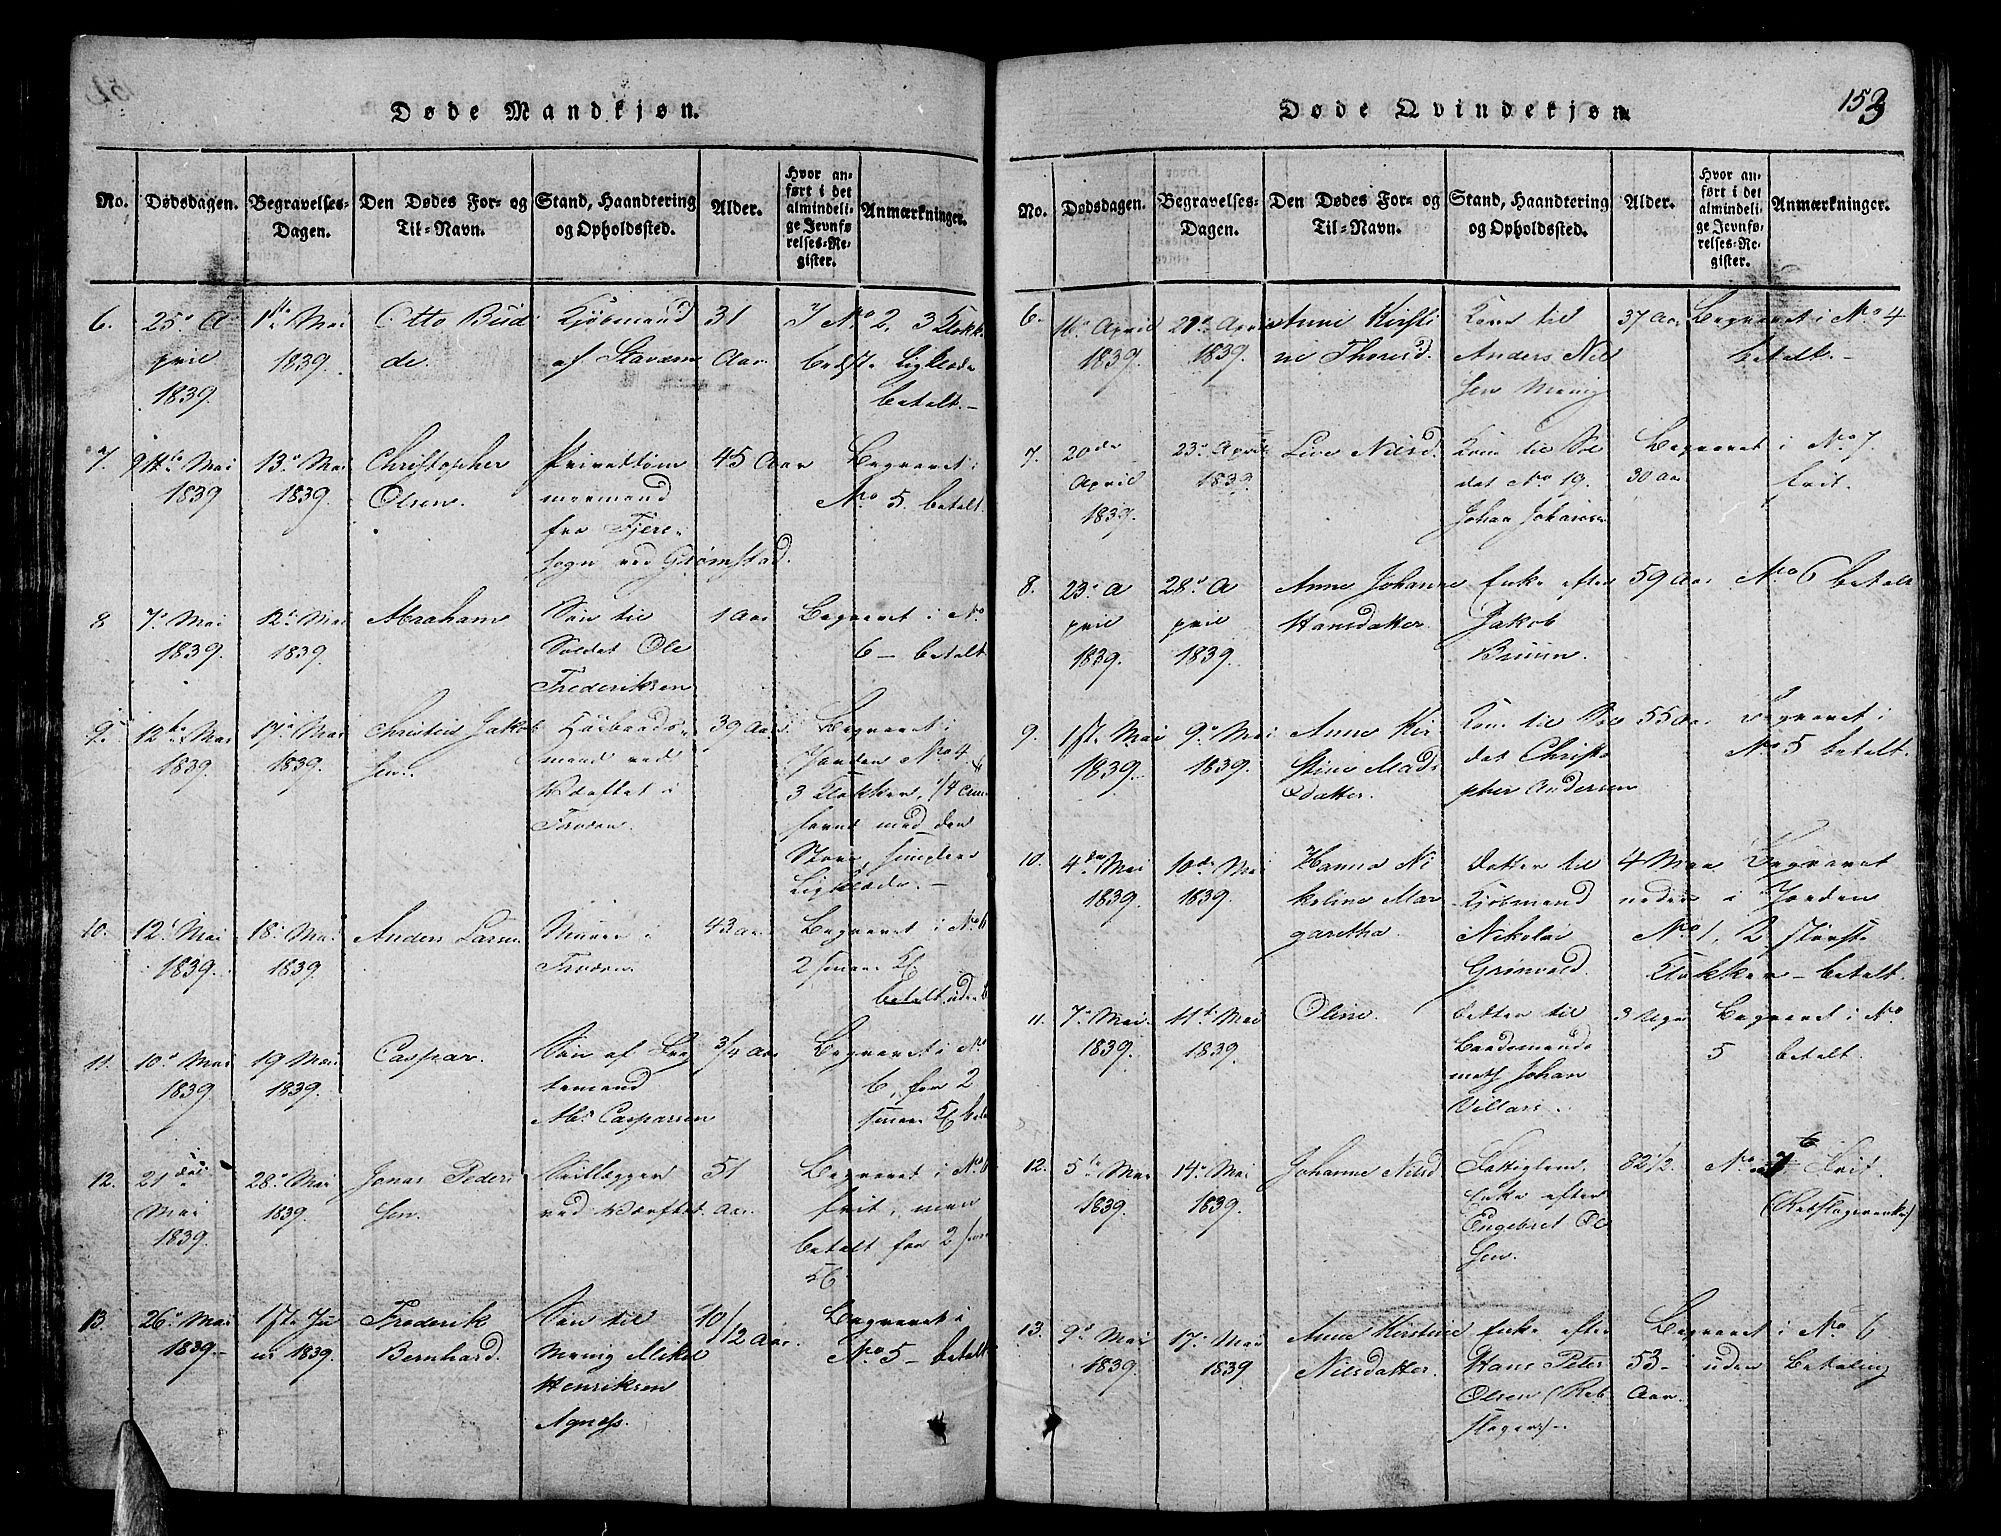 Døde Mandkjøn.
No.
Dødsdagen.
Begravelses-
Dagen.
Den Dødes For- og
Til-Navn.
Stand, Haandtering
og Opholdssted.
Alder.
Hvor an-
ført i det
almindeli-
ge Jevnfø-
relses-Re-
gister.
Anmærkninger.
6.
25de A-
pril
1839.
1ste Mai
1839.
Otto Bud
de.
Kjøbmand
af
31
Aar
I No 2. 3 Klokk
bedste Ligklæde
betalt.
7.
Mai
1839
13de Mai
1839.
Christopher
Olsen.
mermand
fra Fjere-
sogn ved Grømstad.
45 Aar
Begravet i
No 5. betalt.
8
7de Mai
1839.
12te Mai
1839.
Abraham
Søn til
Soldat Ole
Frederiksen
1 Aar
Begravet i No
6 – betalt
9.
12te Mai
1839.
17de Mai
1839.
Christen Jakob
sen.
mand ved
Værftet i
39 Aar
Begravet i
Jorden No 4
3 Klokker, 1/4
med den
Store, simplere
Ligklæde. –
10.
12te Mai
1839.
18de Mai
1839.
Anders Larsen
Murer i
43 Aar
Begravet i No 6
2 smaae Kl
betalt uden
11.
10de Mai
1839
19 Mai
1839.
Caspar.
Søn af
temand
Abr. Caspersen
3/4 Aar
Begravet i No
6, for 2
smaae Kl
12.
21de
Mai
1839.
28de Mai
1839.
Jonas Peder
sen.
ved Værftet.
51
Aar.
Begravet i No 6
frit, men
betalt for 2
Kl
13.
26de Mai
1839.–
1ste Ju
ni 1839.
Frederik
Bernhard.
Søn til
Menig Mikel
Henriksen
Agnæss.
10
/12 Aar.
Begravet i
No 5 – betalt
Døde Qvindekjøn
153
No.
Dødsdagen.
Begravelses-
Dagen.
Den Dødes For- og
Til-Navn.
Stand, Haandtering
og Opholdssted.
Alder.
Hvor an-
ført i det
almindeli-
ge Jevnfø-
relses-Re-
gister.
Anmærkninger.
6.
April
1839.
April
1839.
Anne Kirsti
ne Thorsd.
Kone til
Anders Niel
sen Menig
37 Aar
Begravet i No 4
betalt. –
7.
20de
April
1839.
23de April
1839.
Live Nilsd.
Kone til Sol
dat No 19.
Johan Johansen
30 Aar
Begravet i No 7.
frit.
8.
23de A
pril
1839.
28de A
pril
1839.
Anne Johanne
Hansdatter.
Enke efter
Jakob
Bruun.
59 Aar
No 6 betalt
9.
1ste Mai
1839.
9de Mai
1839.
Anne Kir
stine Mads
datter.
Kone til Sol
dat Christo
pher Andersen
55 Aar
Begravet i
No 5 betalt.
10.
4de Mai
1839.
10de Mai
1839.
Hanna Ni
koline Mar
garetha
Datter til
Kjøbmand
Nikolai
Grønvold.
4 Maa
neder
Begravet
i Jorden
No 1, 2 største
Klokker – betalt.
11.
7de Mai.
1839.
11te Mai
1839.
Oline.
Datter til
Baadsmands
math Johan
Villars.
3 Uger
Begravet i No
5 betalt.
12.
5te Mai
1839.
14de Mai
1839.
Johanne Nilsd
Fattiglem
Enke efter
Engebret Ol
sen.
82 1/2
No 6 Frit.
(Rebslagerenke)
13.
9de Mai
1839.
17de Mai
1839
Anne Kirstine
Nilsdatter.
Enke efter
Hans Peter
Olsen (Reb
slager).
53
Aar
Begravet i No 6
uden Betaling